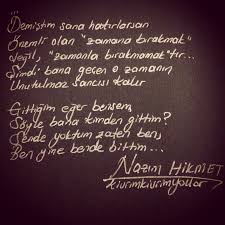 Demiştim sana hatırlarsan
Önemli olan "zamana bırakmak"
değil, "zamanla bırakmamak"tır...
Şimdi bana geçen o zamanın
Unutulmaz sancısı kalır
Gittiğim eğer bensem,
Söyle bana kimden gittim?
Sende yoktum zaten ben,
Ben yine bende bittim...
Nazım Hikmet
kıvrımkıvrımyollar